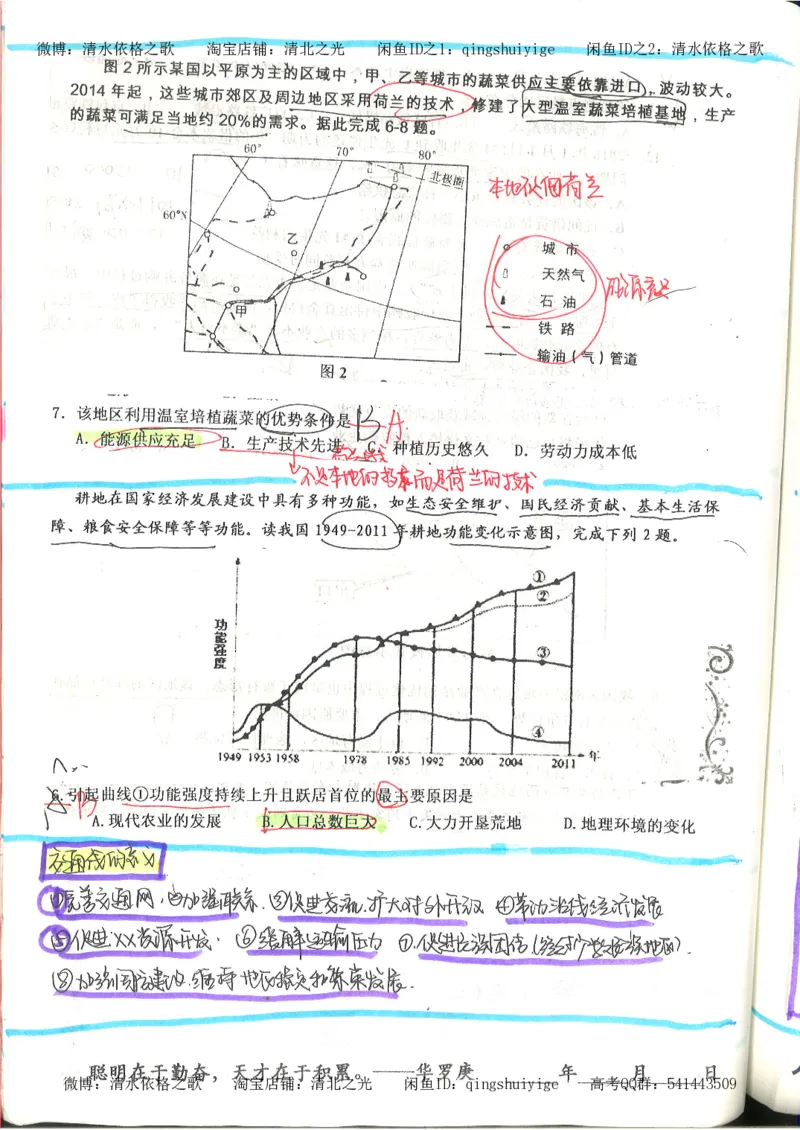 微博：清水依格之歌 淘宝店铺：清北之光 闲鱼ID之1：qingshuiyige 闲鱼ID之2：清水依格之歌
图 2 所示某国以平原为主的区域中，甲、乙等城市的蔬菜供应主要依靠进口，波动较大。
2014 年起，这些城市郊区及周边地区采用荷兰的技术，修建了大型温室蔬菜培植基地，生产
的蔬菜可满足当地约 20%的需求。据此完成 6-8 题。
60° 70° 80°
北极圈
60°N
乙
甲
城 市
天然气
石 油
铁 路
输油（气）管道
图 2
7．该地区利用温室培植蔬菜的优势条件是 B A
A．能源供应充足 B．生产技术先进 C．种植历史悠久 D．劳动力成本低
不是本地的技术而是荷兰的技术
耕地在国家经济发展建设中具有多种功能，如生态安全维护、国民经济贡献、基本生活保
障、粮食安全保障等等功能。读我国 1949-2011 年耕地功能变化示意图，完成下列 2 题。
功能强度
①
②
③
④
1949 1953 1958 1978 1985 1992 2000 2004 2011 年
6.引起曲线①功能强度持续上升且跃居首位的最主要原因是
A.现代农业的发展 B.人口总数巨大 C.大力开垦荒地 D.地理环境的变化
交通线的意义
①完善交通网，②加强联系，③促进交流，扩大对外开放 ④带动沿线经济发展
⑤促进XX资源开发， ⑥缓解运输压力 ⑦促进民族团结
⑧加强国防建设，维持地区稳定和
聪明在于勤奋，天才在于积累。——华罗庚 年 月 日
微博：清水依格之歌 淘宝店铺：清北之光 闲鱼ID：qingshuiyige 高考QQ群：541443509